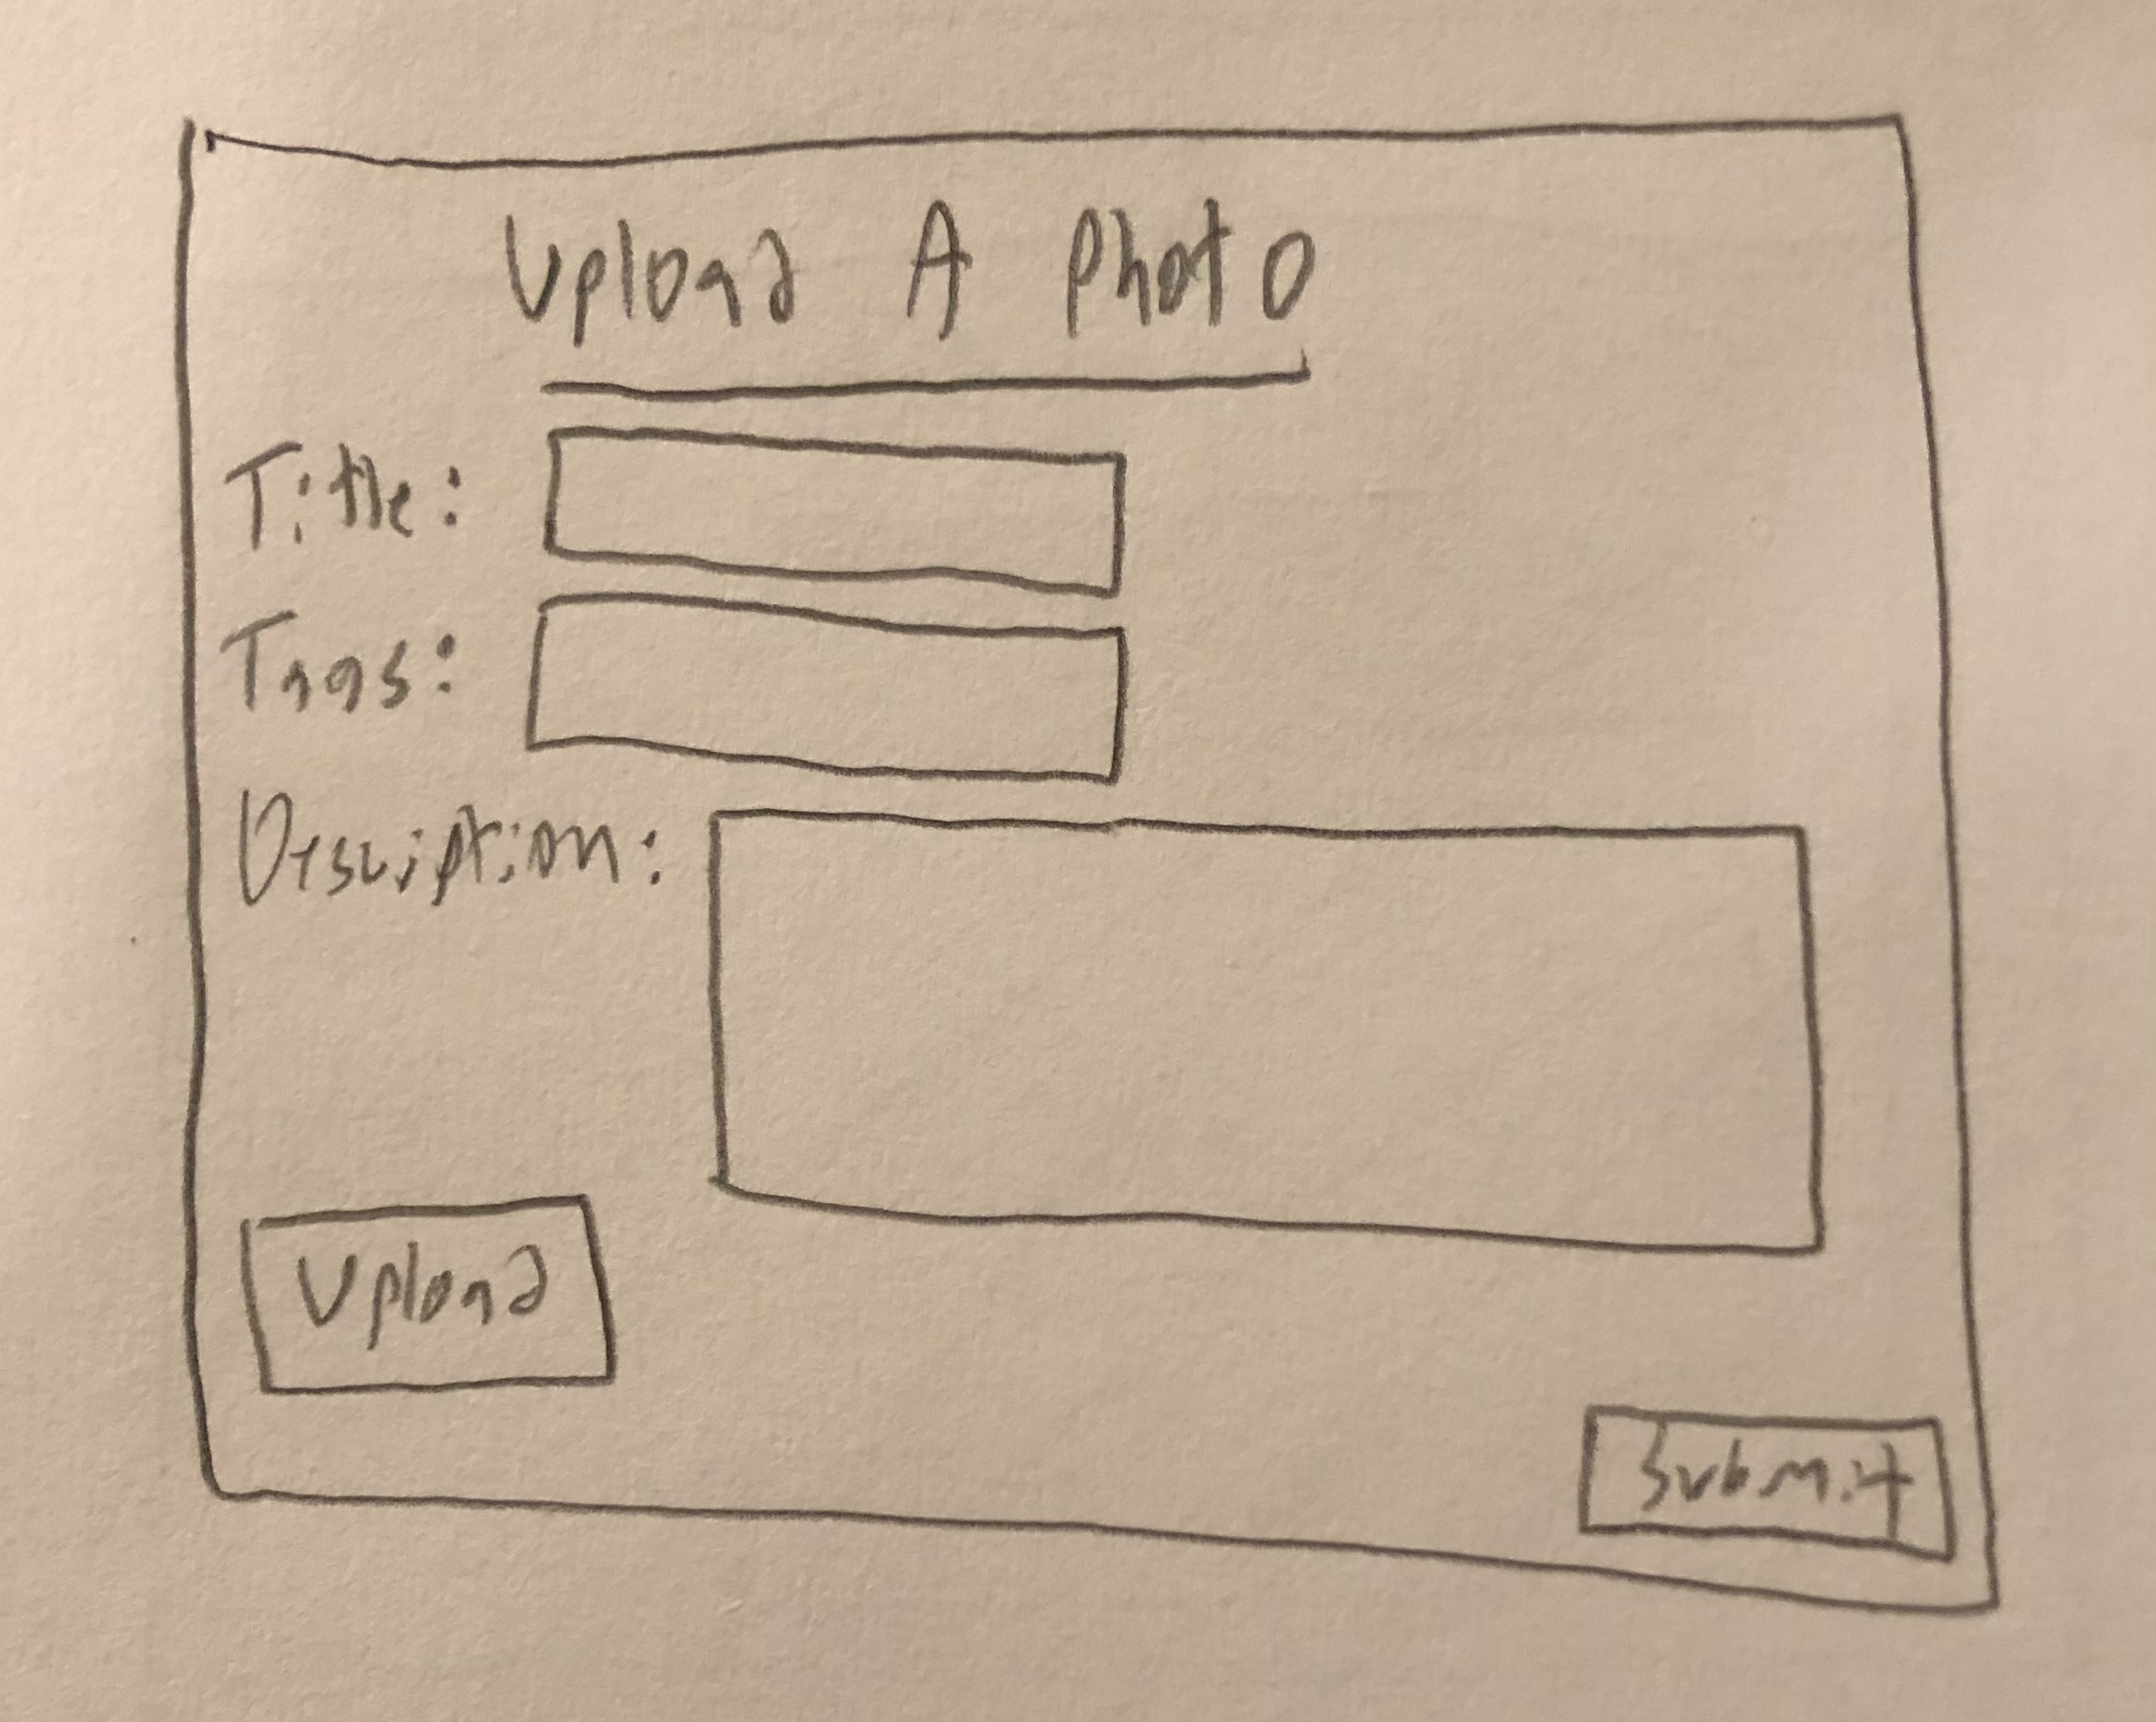 Upload A Photo
Title:
Tags:
Description:
Upload
Submit